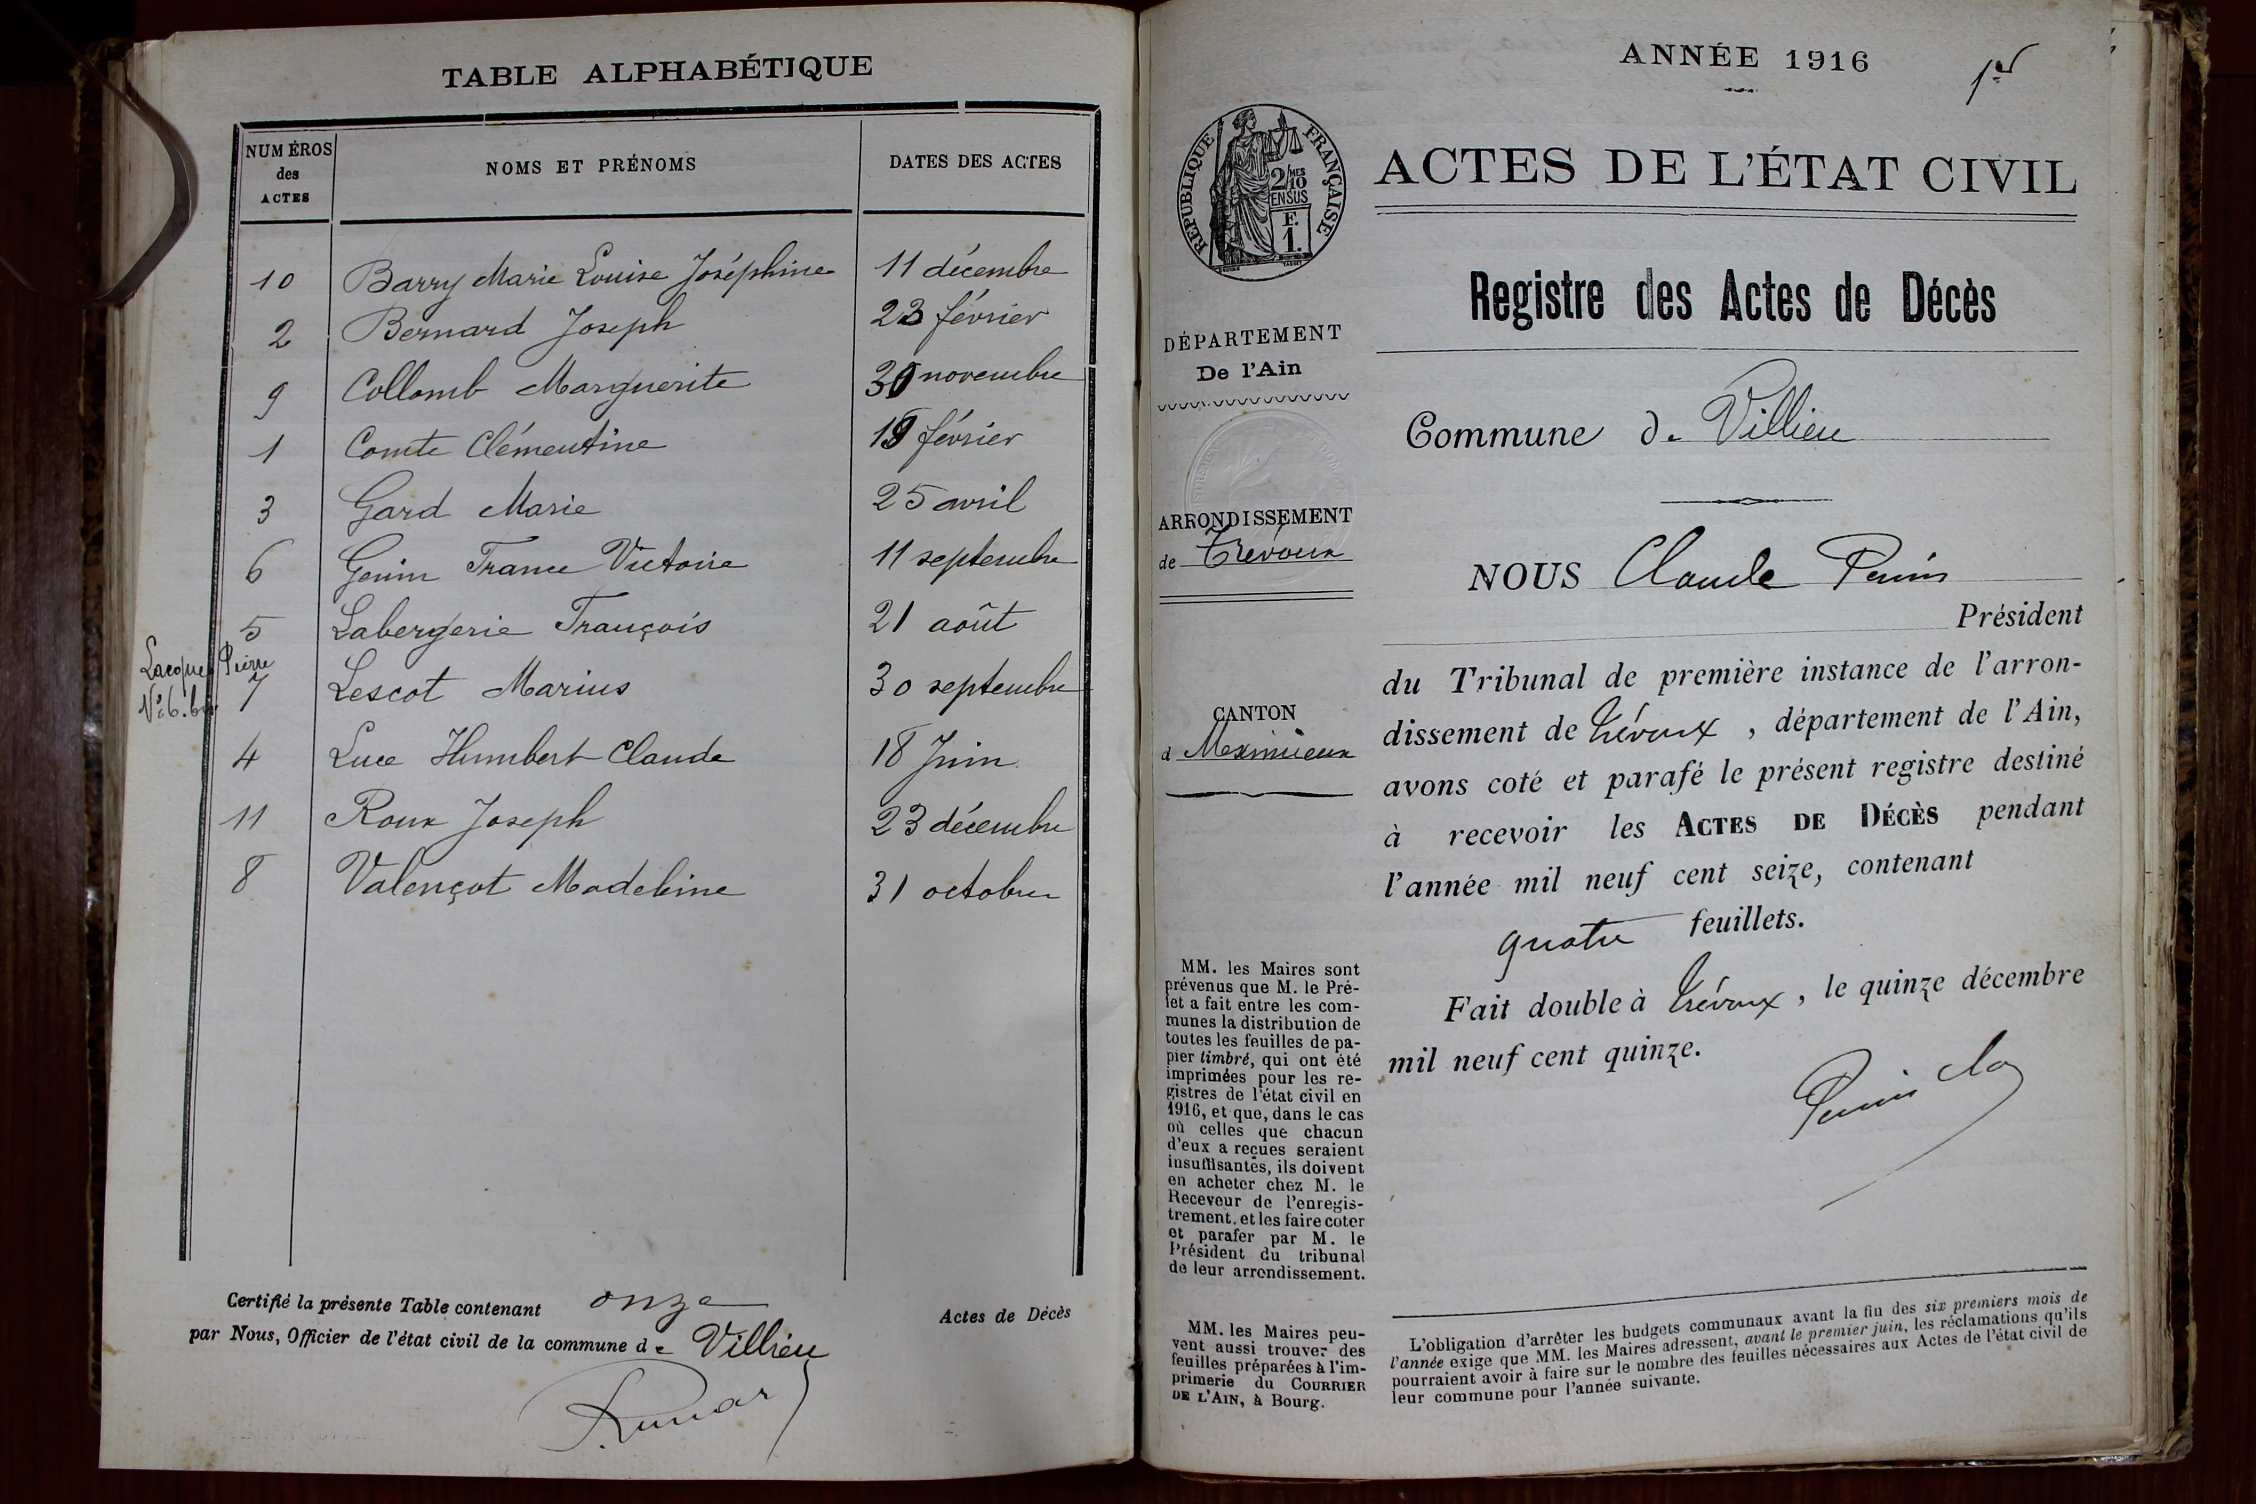 TABLE ALPHABÉTIQUE
NUMÉROS
des
ACTES
NOMS ET PRÉNOMS
DATES DES ACTES
10 Barry Marie Louise Joséphine 11 décembre
2 Bernard Joseph 23 février
9 Collomb Marguerite 30 novembre
1 Comte Clémentine 19 février
3 Gard Marie 25 avril
6 Genin France Victoire 11 septembre
5 Labergerie François 21 août
Lacques Pierre
N° 6. bis
7 Lescot Marius 30 septembre
4 Luce Humbert Claude 18 Juin
11 Roux Joseph 23 décembre
8 Valençot Madeleine 31 octobre
Certifié la présente Table contenant onze Actes de Décès
par Nous, Officier de l'état civil de la commune de Villieu
ANNÉE 1916
1er
RÉPUBLIQUE FRANÇAISE
2/10 MES
EN SUS
F.
1.
ACTES DE L'ÉTAT CIVIL
Registre des Actes de Décès
DÉPARTEMENT
De l'Ain
Commune de Villieu
ARRONDISSEMENT
de Trévoux
CANTON
d Meximieux
NOUS Claude Perrin
Président
du Tribunal de première instance de l'arron-
dissement de Trévoux, département de l'Ain,
avons coté et parafé le présent registre destiné
à recevoir les ACTES DE DÉCÈS pendant
l'année mil neuf cent seize, contenant
quatre feuillets.
Fait double à Trévoux, le quinze décembre
mil neuf cent quinze.
Perrin Cla
MM. les Maires sont
prévenus que M. le Pré-
fet a fait entre les com-
munes la distribution de
toutes les feuilles de pa-
pier timbré, qui ont été
imprimées pour les re-
gistres de l'état civil en
1916, et que, dans le cas
où celles que chacun
d'eux a reçues seraient
insuffisantes, ils doivent
en acheter chez M. le
Receveur de l'enregis-
trement, et les faire coter
et parafer par M. le
Président du tribunal
de leur arrondissement.
MM. les Maires peu-
vent aussi trouver des
feuilles préparées à l'im-
primerie du COURRIER
DE L'AIN, à Bourg.
L'obligation d'arrêter les budgets communaux avant la fin des six premiers mois de
l'année exige que MM. les Maires adressent, avant le premier juin, les réclamations qu'ils
pourraient avoir à faire sur le nombre des feuilles nécessaires aux Actes de l'état civil de
leur commune pour l'année suivante.